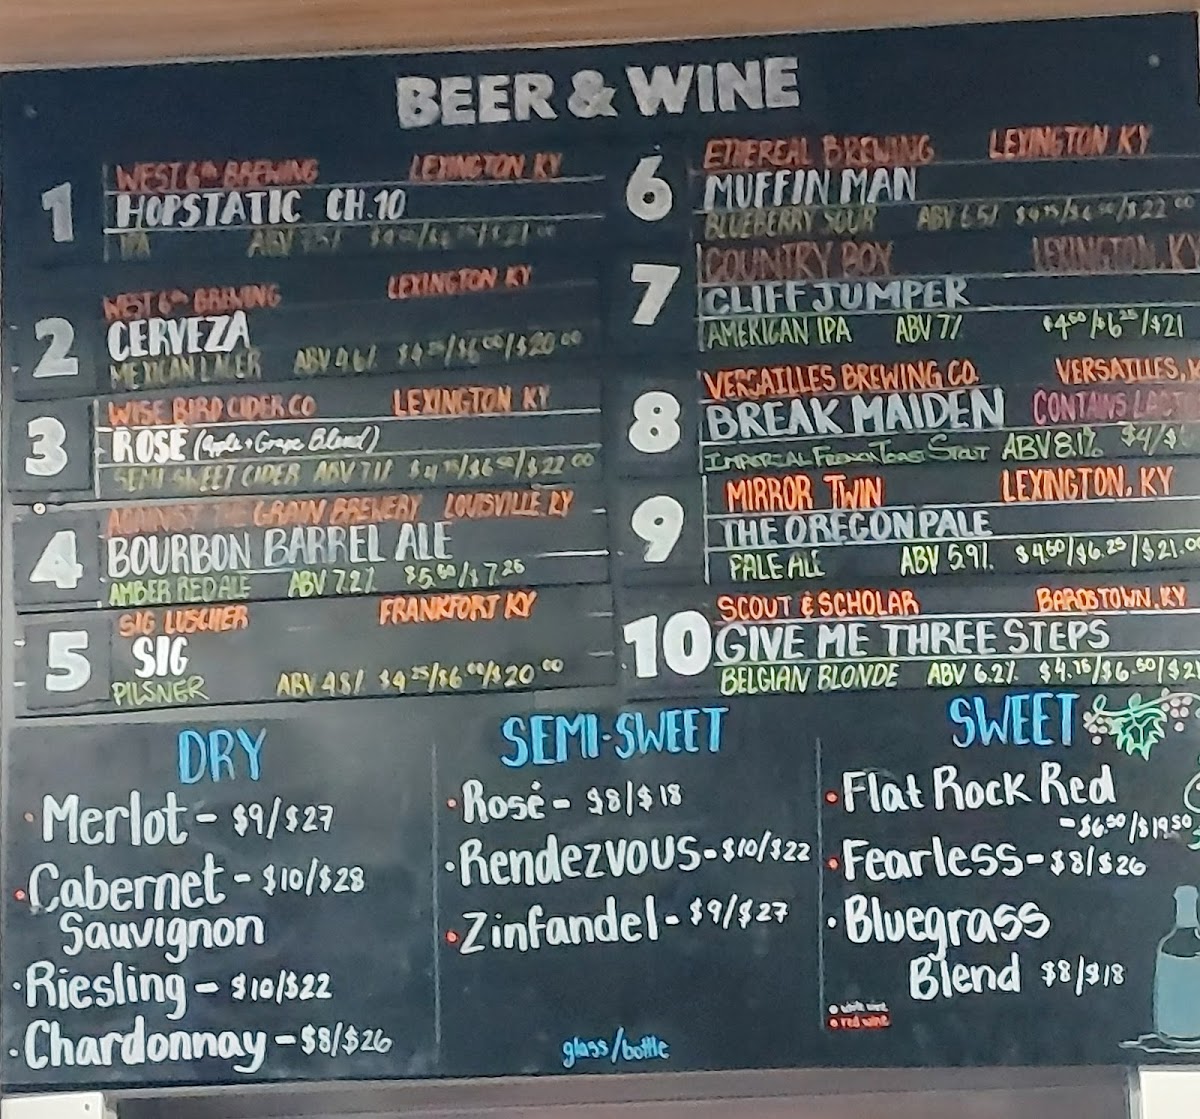 BEER & WINE
1
WEST 6th BREWING LEXINGTON KY
HOPSTATIC CH.10
IPA ABV
2
WEST 6th BREWING LEXINGTON KY
CERVEZA
MEXICAN LAGER ABV 4.6% $4.25/$6.00/$20.00
3
WISE BIRD CIDER CO LEXINGTON KY
ROSÉ (Apple + Grape Blend)
SEMI-SWEET CIDER ABV 7.1% $4.75/$6.50/$22.00
4
AGAINST THE GRAIN BREWERY LOUISVILLE, KY
BOURBON BARREL ALE
AMBER RED ALE ABV 7.2% $5.50/$7.25
5
SIG LUSCHER FRANKFORT KY
SIG
PILSNER ABV 4.8% $4.25/$6.00/$20.00
6
ETHEREAL BREWING LEXINGTON KY
MUFFIN MAN
BLUEBERRY SOUR ABV 6.5% $4.75/$6.50/$22.00
7
COUNTRY BOY LEXINGTON, KY
CLIFF JUMPER
AMERICAN IPA ABV 7% $4.50/$6.25/$21
8
VERSAILLES BREWING CO. VERSAILLES, K
BREAK MAIDEN CONTAINS LACT
IMPERIAL FRENCH TOAST STOUT ABV 8.1% $4/$
9
MIRROR TWIN LEXINGTON, KY
THE OREGON PALE
PALE ALE ABV 5.9% $4.50/$6.25/$21.00
10
SCOUT & SCHOLAR BARDSTOWN, KY
GIVE ME THREE STEPS
BELGIAN BLONDE ABV 6.2% $4.75/$6.50/$21
DRY
• Merlot - $9/$27
• Cabernet - $10/$28
Sauvignon
• Riesling - $10/$22
• Chardonnay - $8/$26
SEMI-SWEET
• Rosé - $8/$18
• Rendezvous - $10/$22
• Zinfandel - $9/$27
glass/bottle
SWEET
• Flat Rock Red
- $6.50/$19.50
• Fearless - $8/$26
• Bluegrass
Blend $8/$18
• white wine
• red wine